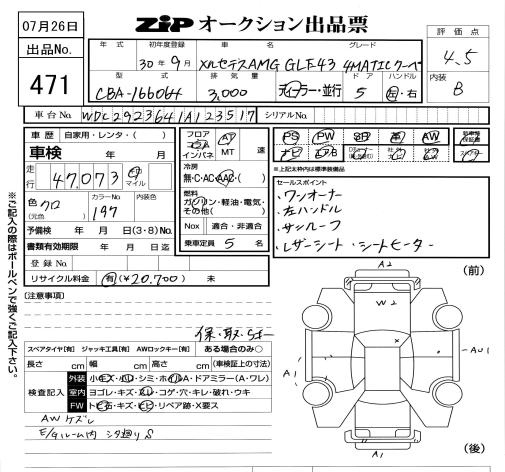 07月26日
ZIP オークション出品票
出品No.
471
年式 初年度登録 車名 グレード
30年9月 メルセデスAMG GLE43 4MATICクーペ
評価点
4.5
型式 排気量 ドア ハンドル
CBA-166064 3,000 ディーラー・並行 5 左・右
内装
B
車台No. WDC2923641A123517 シリアルNo.
車歴 自家用・レンタ・( )
車検 年 月
走行 47,073 km マイル
色 クロ (元色) カラーNo. 197 内装色
予備検 年 月 日(3・8)No.
書類有効期限 年 月 日迄
登録No.
リサイクル料金 有(¥20,700) 未
フロア コラム インパネ AT MT 速
冷房
無・C・AC・AAC( )
燃料
ガソリン・軽油・電気・その他( )
Nox 適合・非適合
乗車定員 5 名
PS PW SR 革 AW
ナビ エアB
※上記太枠内は標準装備品
セールスポイント
・ワンオーナー
・左ハンドル
・サンルーフ
・レザーシート・シートヒーター
[注意事項]
保・取・Sキー
スペアタイヤ[有] ジャッキ工具[有] AWロックキー[有] ある場合のみ○
長さ cm 幅 cm 高さ cm (車検証上の寸法)
検査記入
外装 小キズ・小凹・シミ・ホイルA・ドアミラー(A・ワレ)
室内 ヨゴレ・キズ・スレ・コゲ・穴・キレ・破れ・ウキ
FW トビ石・キズ・ヒビ・リペア跡・X要ス
AWケズレ
E/Gルーム内 シタ廻りS
(前)
A2
W2
x
A1
AU1
A1
(後)
※ご記入の際はボールペンで強くご記入下さい。